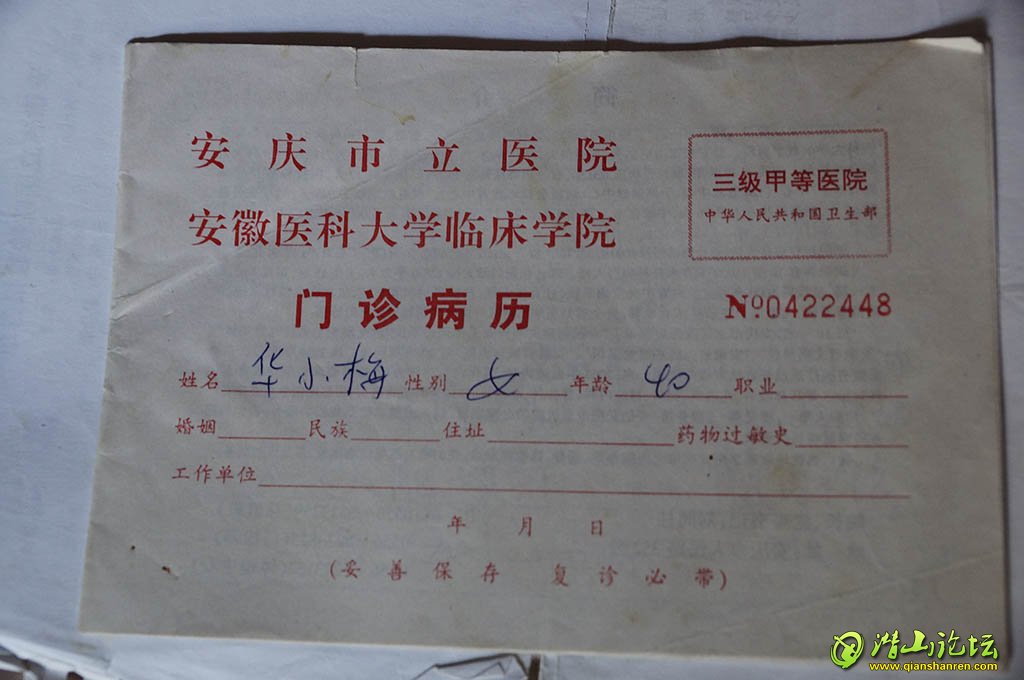 安庆市立医院
安徽医科大学临床学院
三级甲等医院
中华人民共和国卫生部
门诊病历
No0422448
姓名 华小梅 性别 女 年龄 40 职业
婚姻 民族 住址 药物过敏史
工作单位
年 月 日
(妥善保存 复诊必带)
潜山论坛
www.qianshanren.com